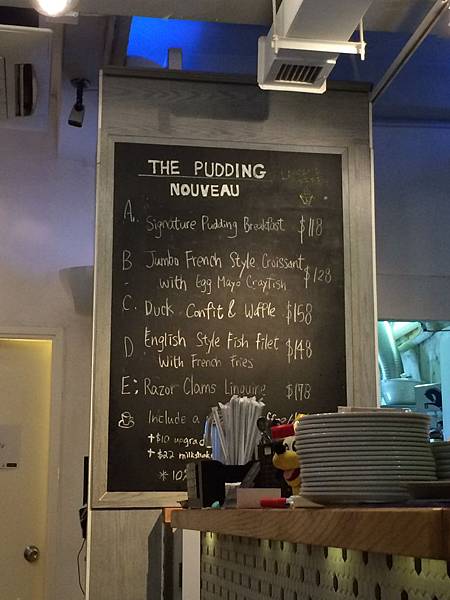 THE PUDDING
NOUVEAU
A. Signature Pudding Breakfast $118
B Jumbo French Style Croissant
with Egg Mayo Crayfish $128
C. Duck Confit & Waffle $158
D English Style Fish Filet $148
With French Fries
E: Razor Clams Linguine $178
Include a
+$10 upgrad
+$22 milkshake
* 10%